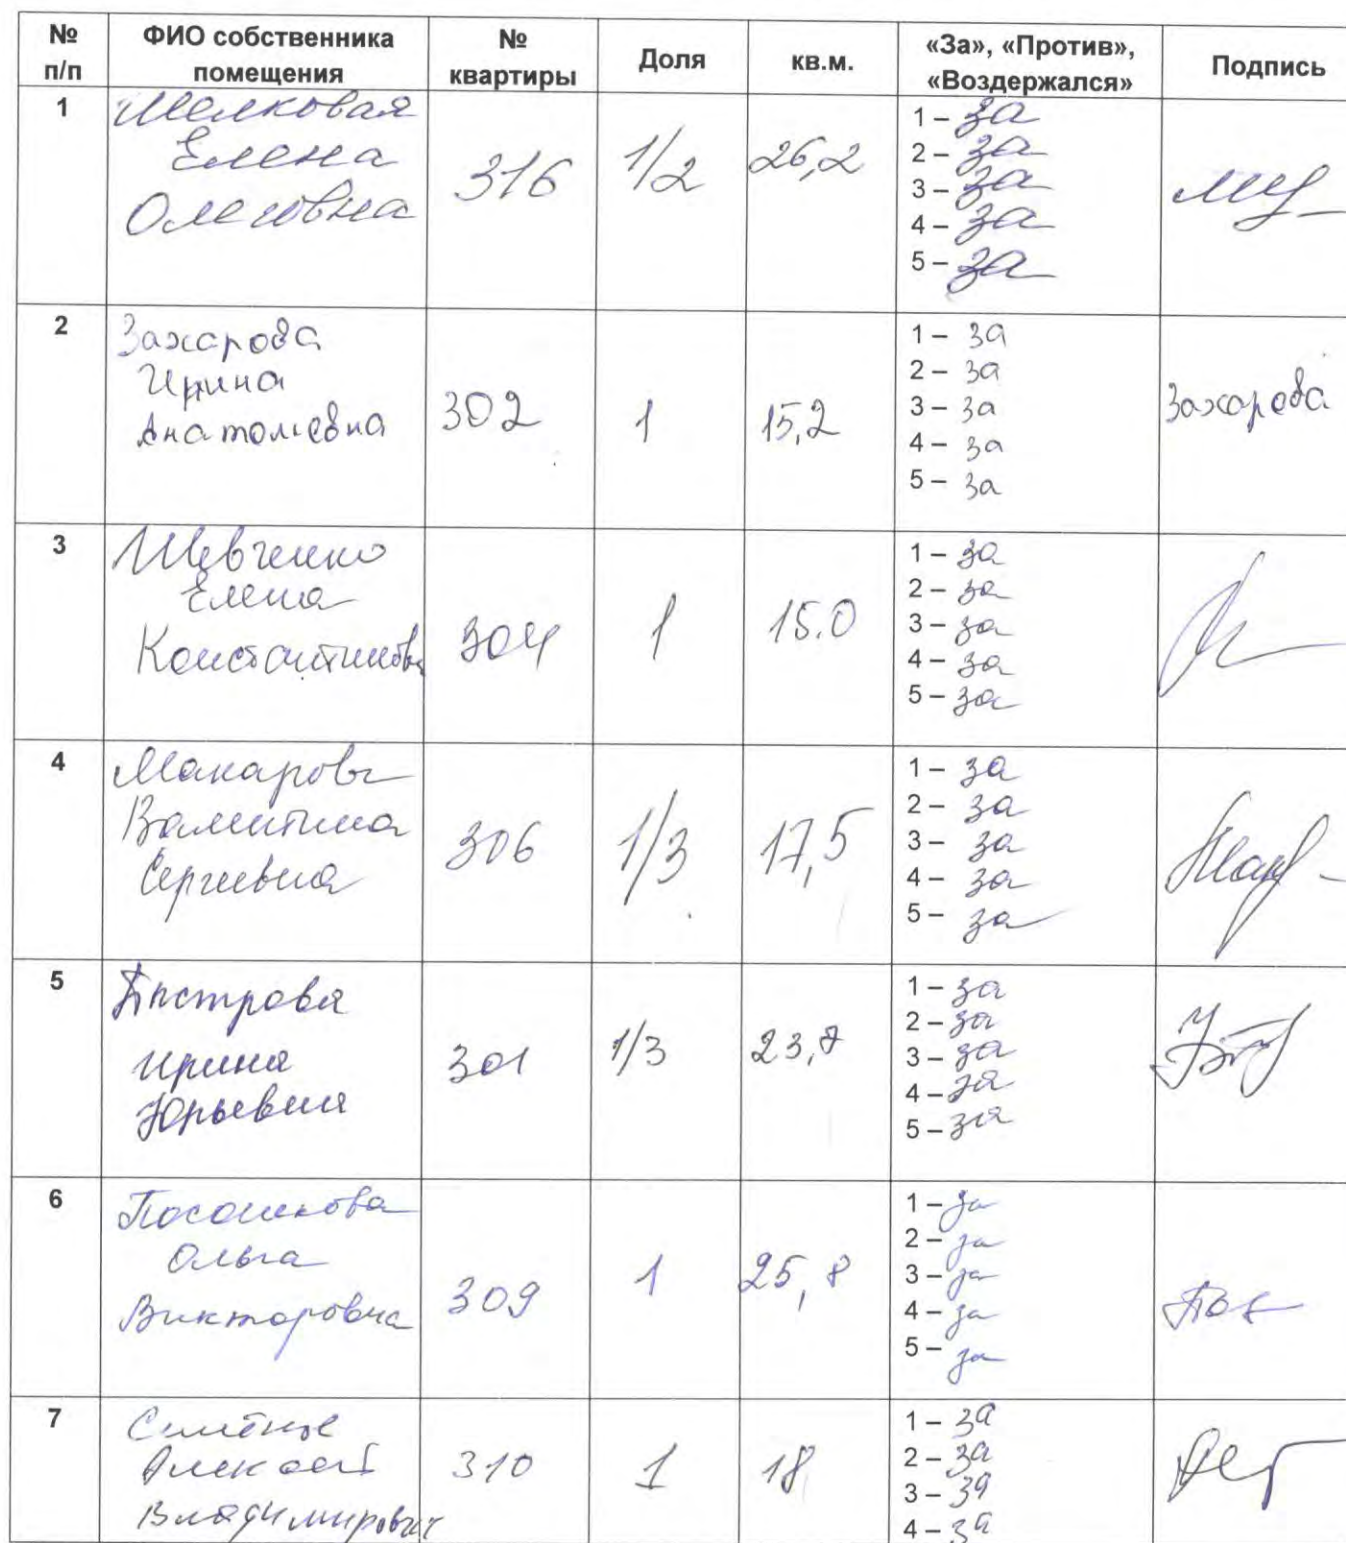 № п/п ФИО собственника помещения № квартиры Доля кв.м. «За», «Против», «Воздержался» Подпись
1
Шелковая
Елена
Олеговна
316 1/2 26,2
1 – за
2 – за
3 – за
4 – за
5 – за
2
Захарова
Ирина
Анатольевна
302 1 15,2
1 – за
2 – за
3 – за
4 – за
5 – за
Захарова
3
Шевченко
Елена
Константиновна
304 1 15.0
1 – за
2 – за
3 – за
4 – за
5 – за
4
Макарова
Валентина
Сергеевна
306 1/3 17,5
1 – за
2 – за
3 – за
4 – за
5 – за
5
Быстрова
Ирина
Юрьевна
301 1/3
1 – за
2 – за
3 – за
4 – за
5 – за
6
Посошкова
Ольга
Викторовна
309 1 25,8
1 – за
2 – за
3 – за
4 – за
5 – за
7
Алексей
Владимирович
310 1 18
1 – за
2 – за
3 – за
4 – за